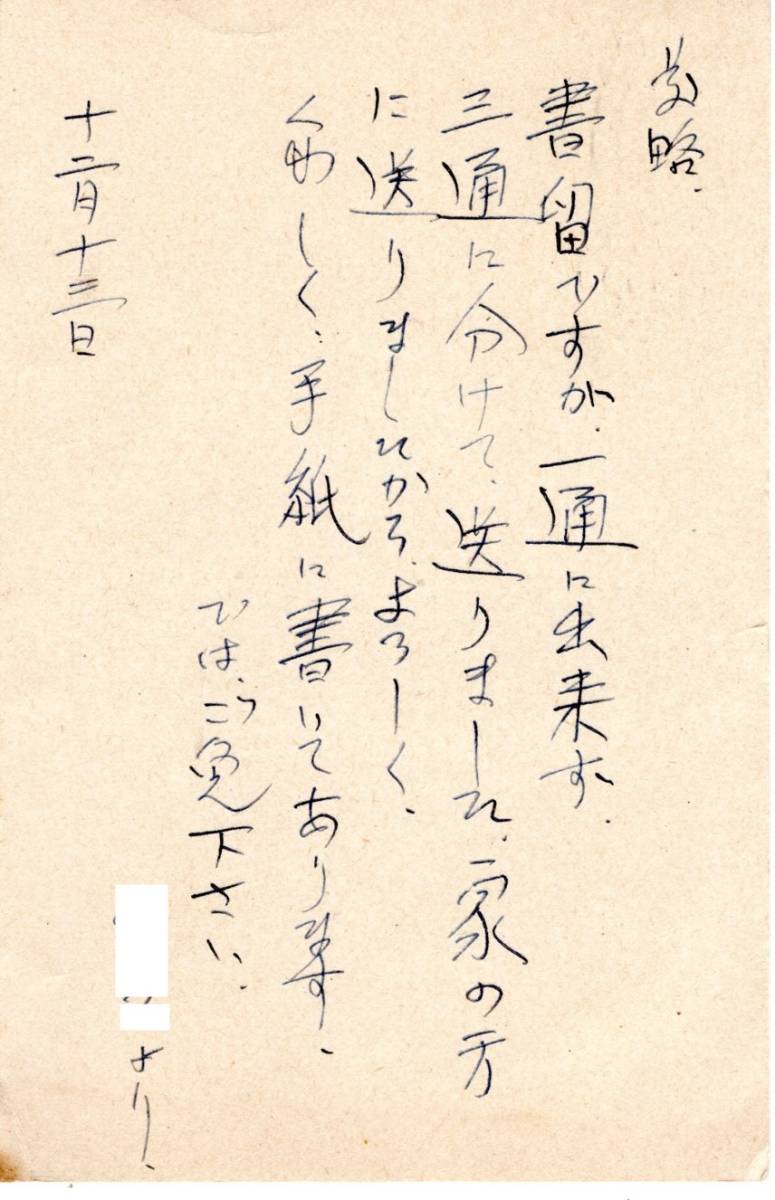 前略、
書留ですが、一通に出来ず、
三通に分けて、送りました、家の方
に送りましたから、よろしく、
くわしく、手紙に書いてあります、
では、ごめん下さい、
十二月十三日
より、